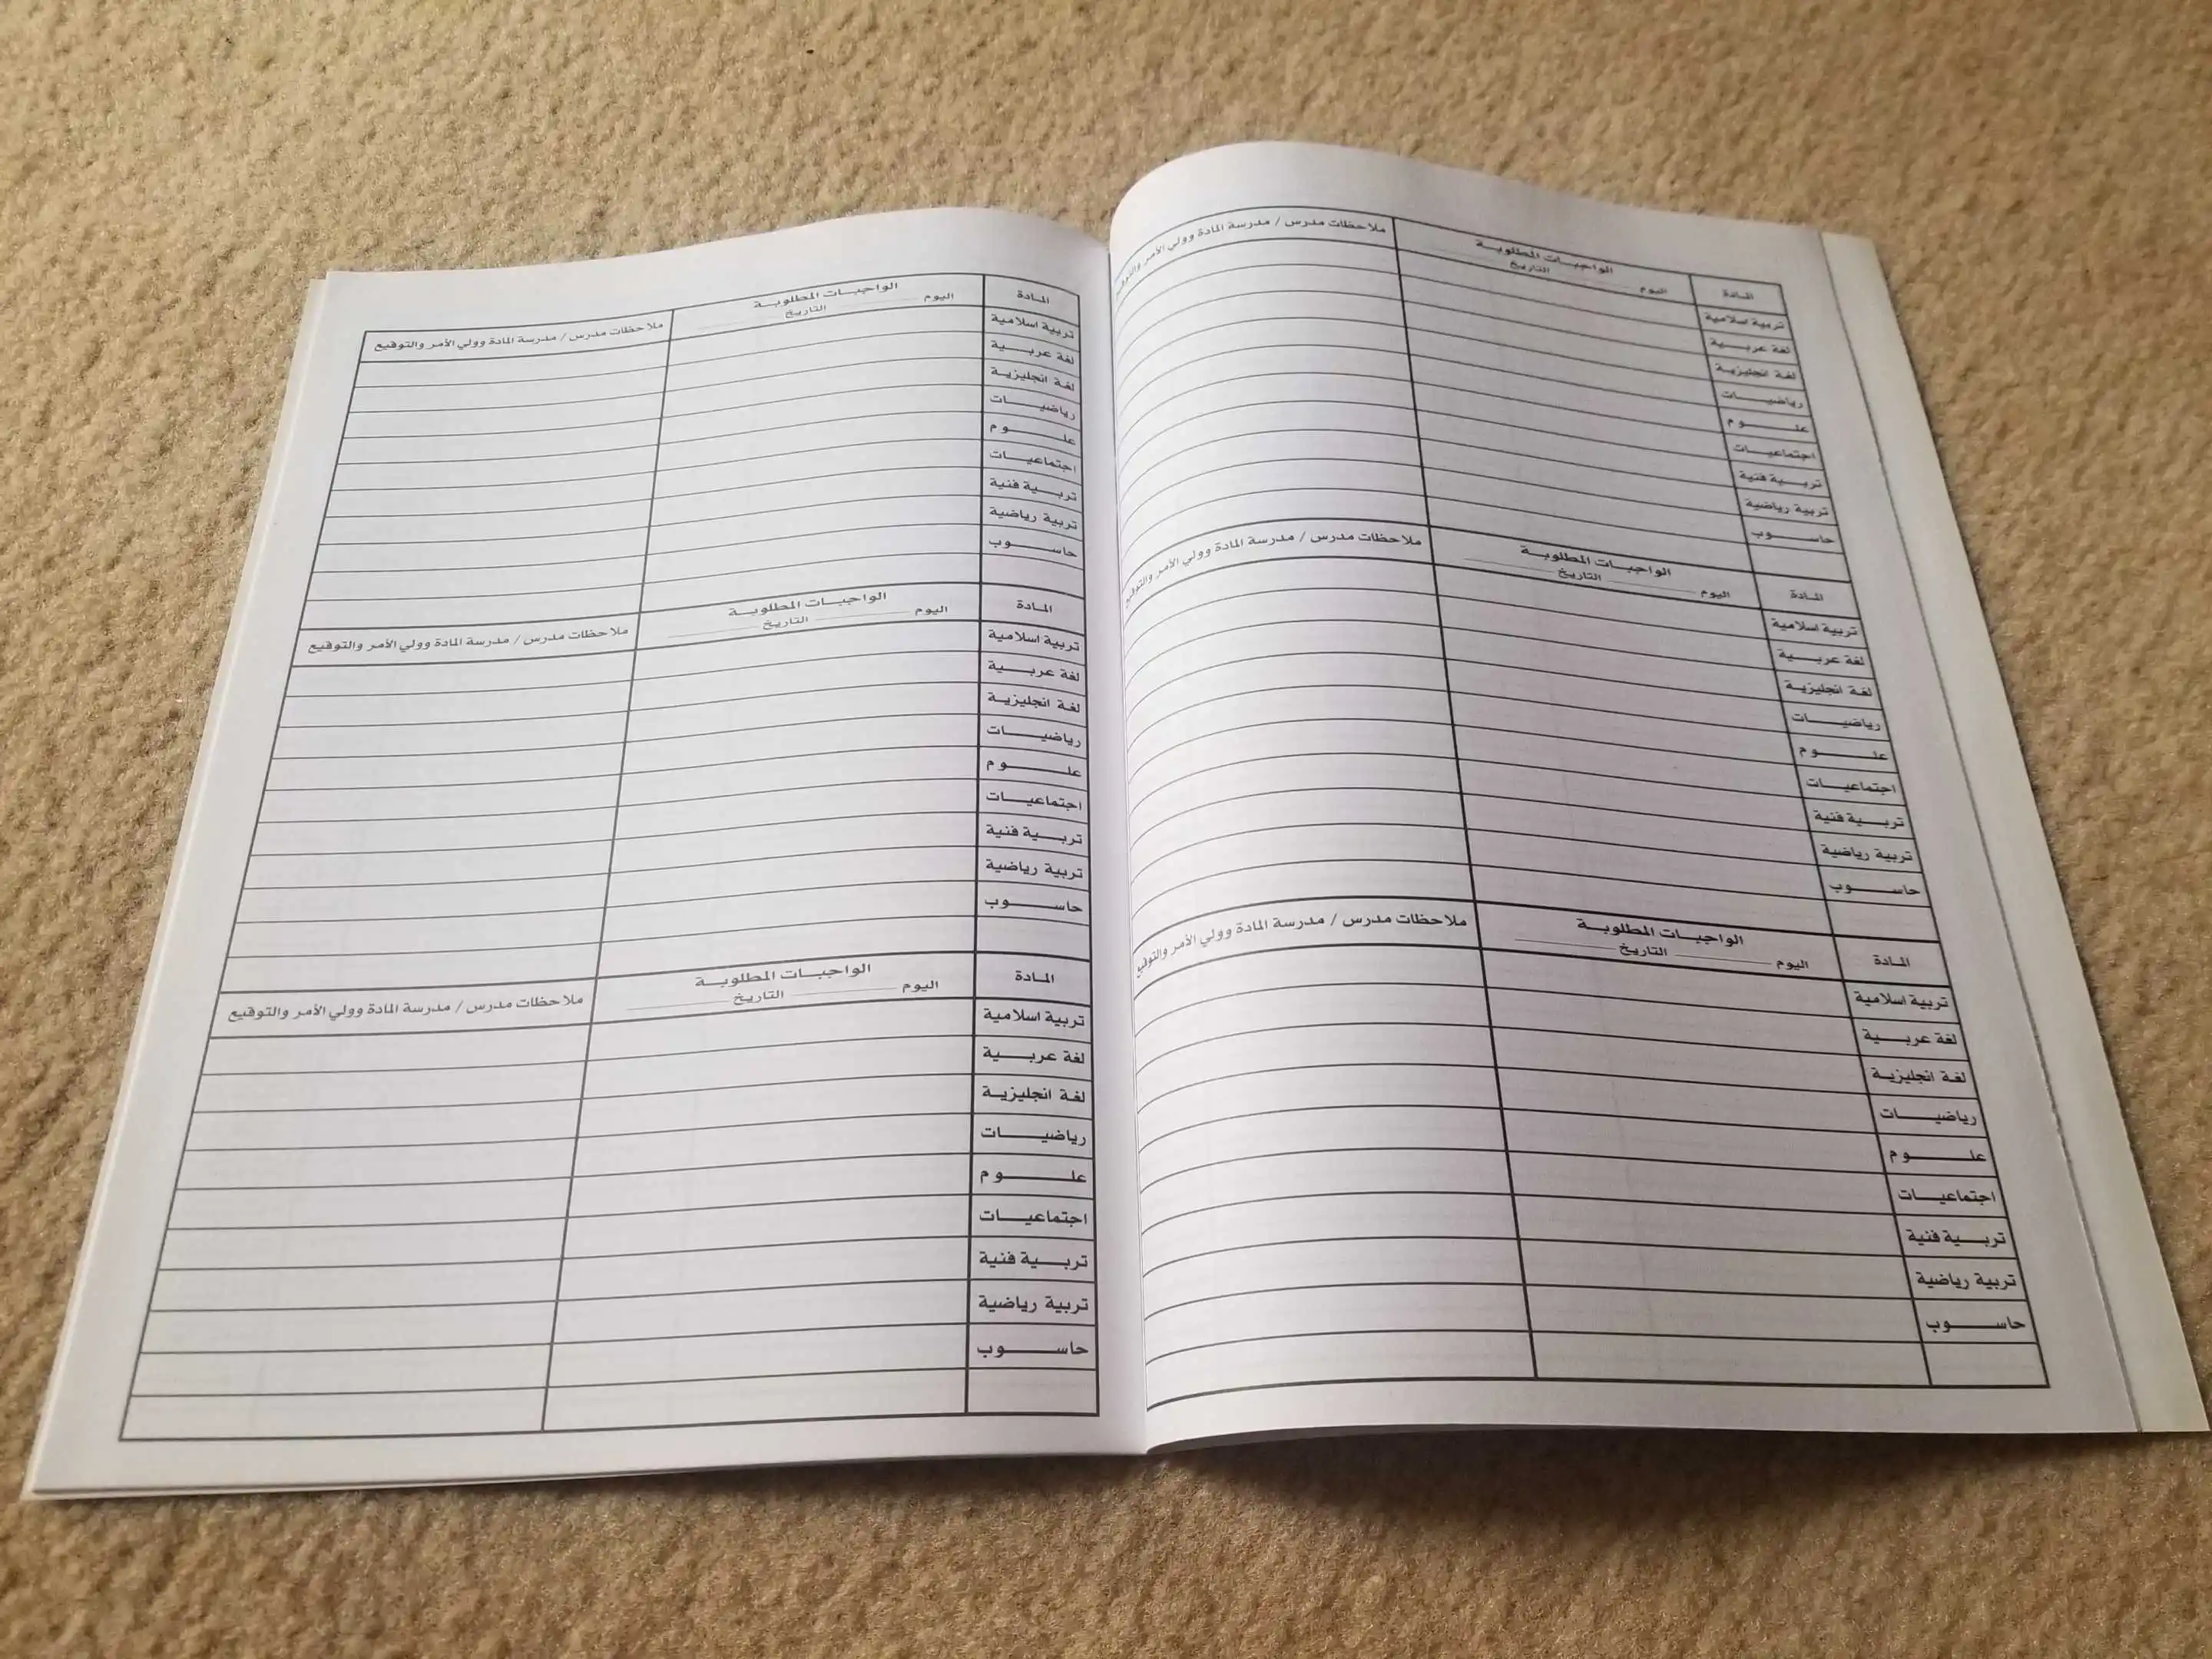 المادة
الواجبات المطلوبة
ملاحظات مدرس / مدرسة المادة وولي الأمر والتوقيع
اليوم التاريخ
تربية اسلامية
لغة عربية
لغة انجليزية
رياضيات
علوم
اجتماعيات
تربية فنية
تربية رياضية
حاسوب
المادة
الواجبات المطلوبة
ملاحظات مدرس / مدرسة المادة وولي الأمر والتوقيع
اليوم التاريخ
تربية اسلامية
لغة عربية
لغة انجليزية
رياضيات
علوم
اجتماعيات
تربية فنية
تربية رياضية
حاسوب
المادة
الواجبات المطلوبة
ملاحظات مدرس / مدرسة المادة وولي الأمر والتوقيع
اليوم التاريخ
تربية اسلامية
لغة عربية
لغة انجليزية
رياضيات
علوم
اجتماعيات
تربية فنية
تربية رياضية
حاسوب
المادة
الواجبات المطلوبة
ملاحظات مدرس / مدرسة المادة وولي الأمر والتوقيع
اليوم التاريخ
تربية اسلامية
لغة عربية
لغة انجليزية
رياضيات
علوم
اجتماعيات
تربية فنية
تربية رياضية
حاسوب
المادة
الواجبات المطلوبة
ملاحظات مدرس / مدرسة المادة وولي الأمر والتوقيع
اليوم التاريخ
تربية اسلامية
لغة عربية
لغة انجليزية
رياضيات
علوم
اجتماعيات
تربية فنية
تربية رياضية
حاسوب
المادة
الواجبات المطلوبة
ملاحظات مدرس / مدرسة المادة وولي الأمر والتوقيع
اليوم التاريخ
تربية اسلامية
لغة عربية
لغة انجليزية
رياضيات
علوم
اجتماعيات
تربية فنية
تربية رياضية
حاسوب